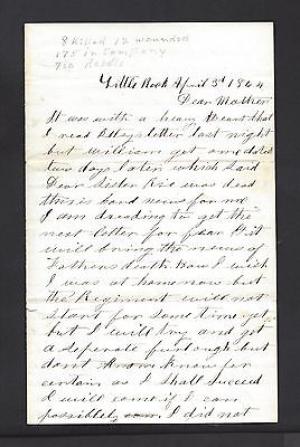 8 killed 12 wounded
175 in Company
710 Rebels
Little Rock April 3d 1864
Dear Mother
It was with a heavy heart that
I read letter last night
but William got one dated
two days later which said
Dear Sister was dead
this is hard news for me
I am dreading to get the
next letter for fear it
will bring the news of
Fathers death How I wish
I was at home now but
the Regiment will not
start for some time yet
but I will try and get
a seperate furlough but
dont know for
certain as I shall succeed
I will come if I can
possibley I did not